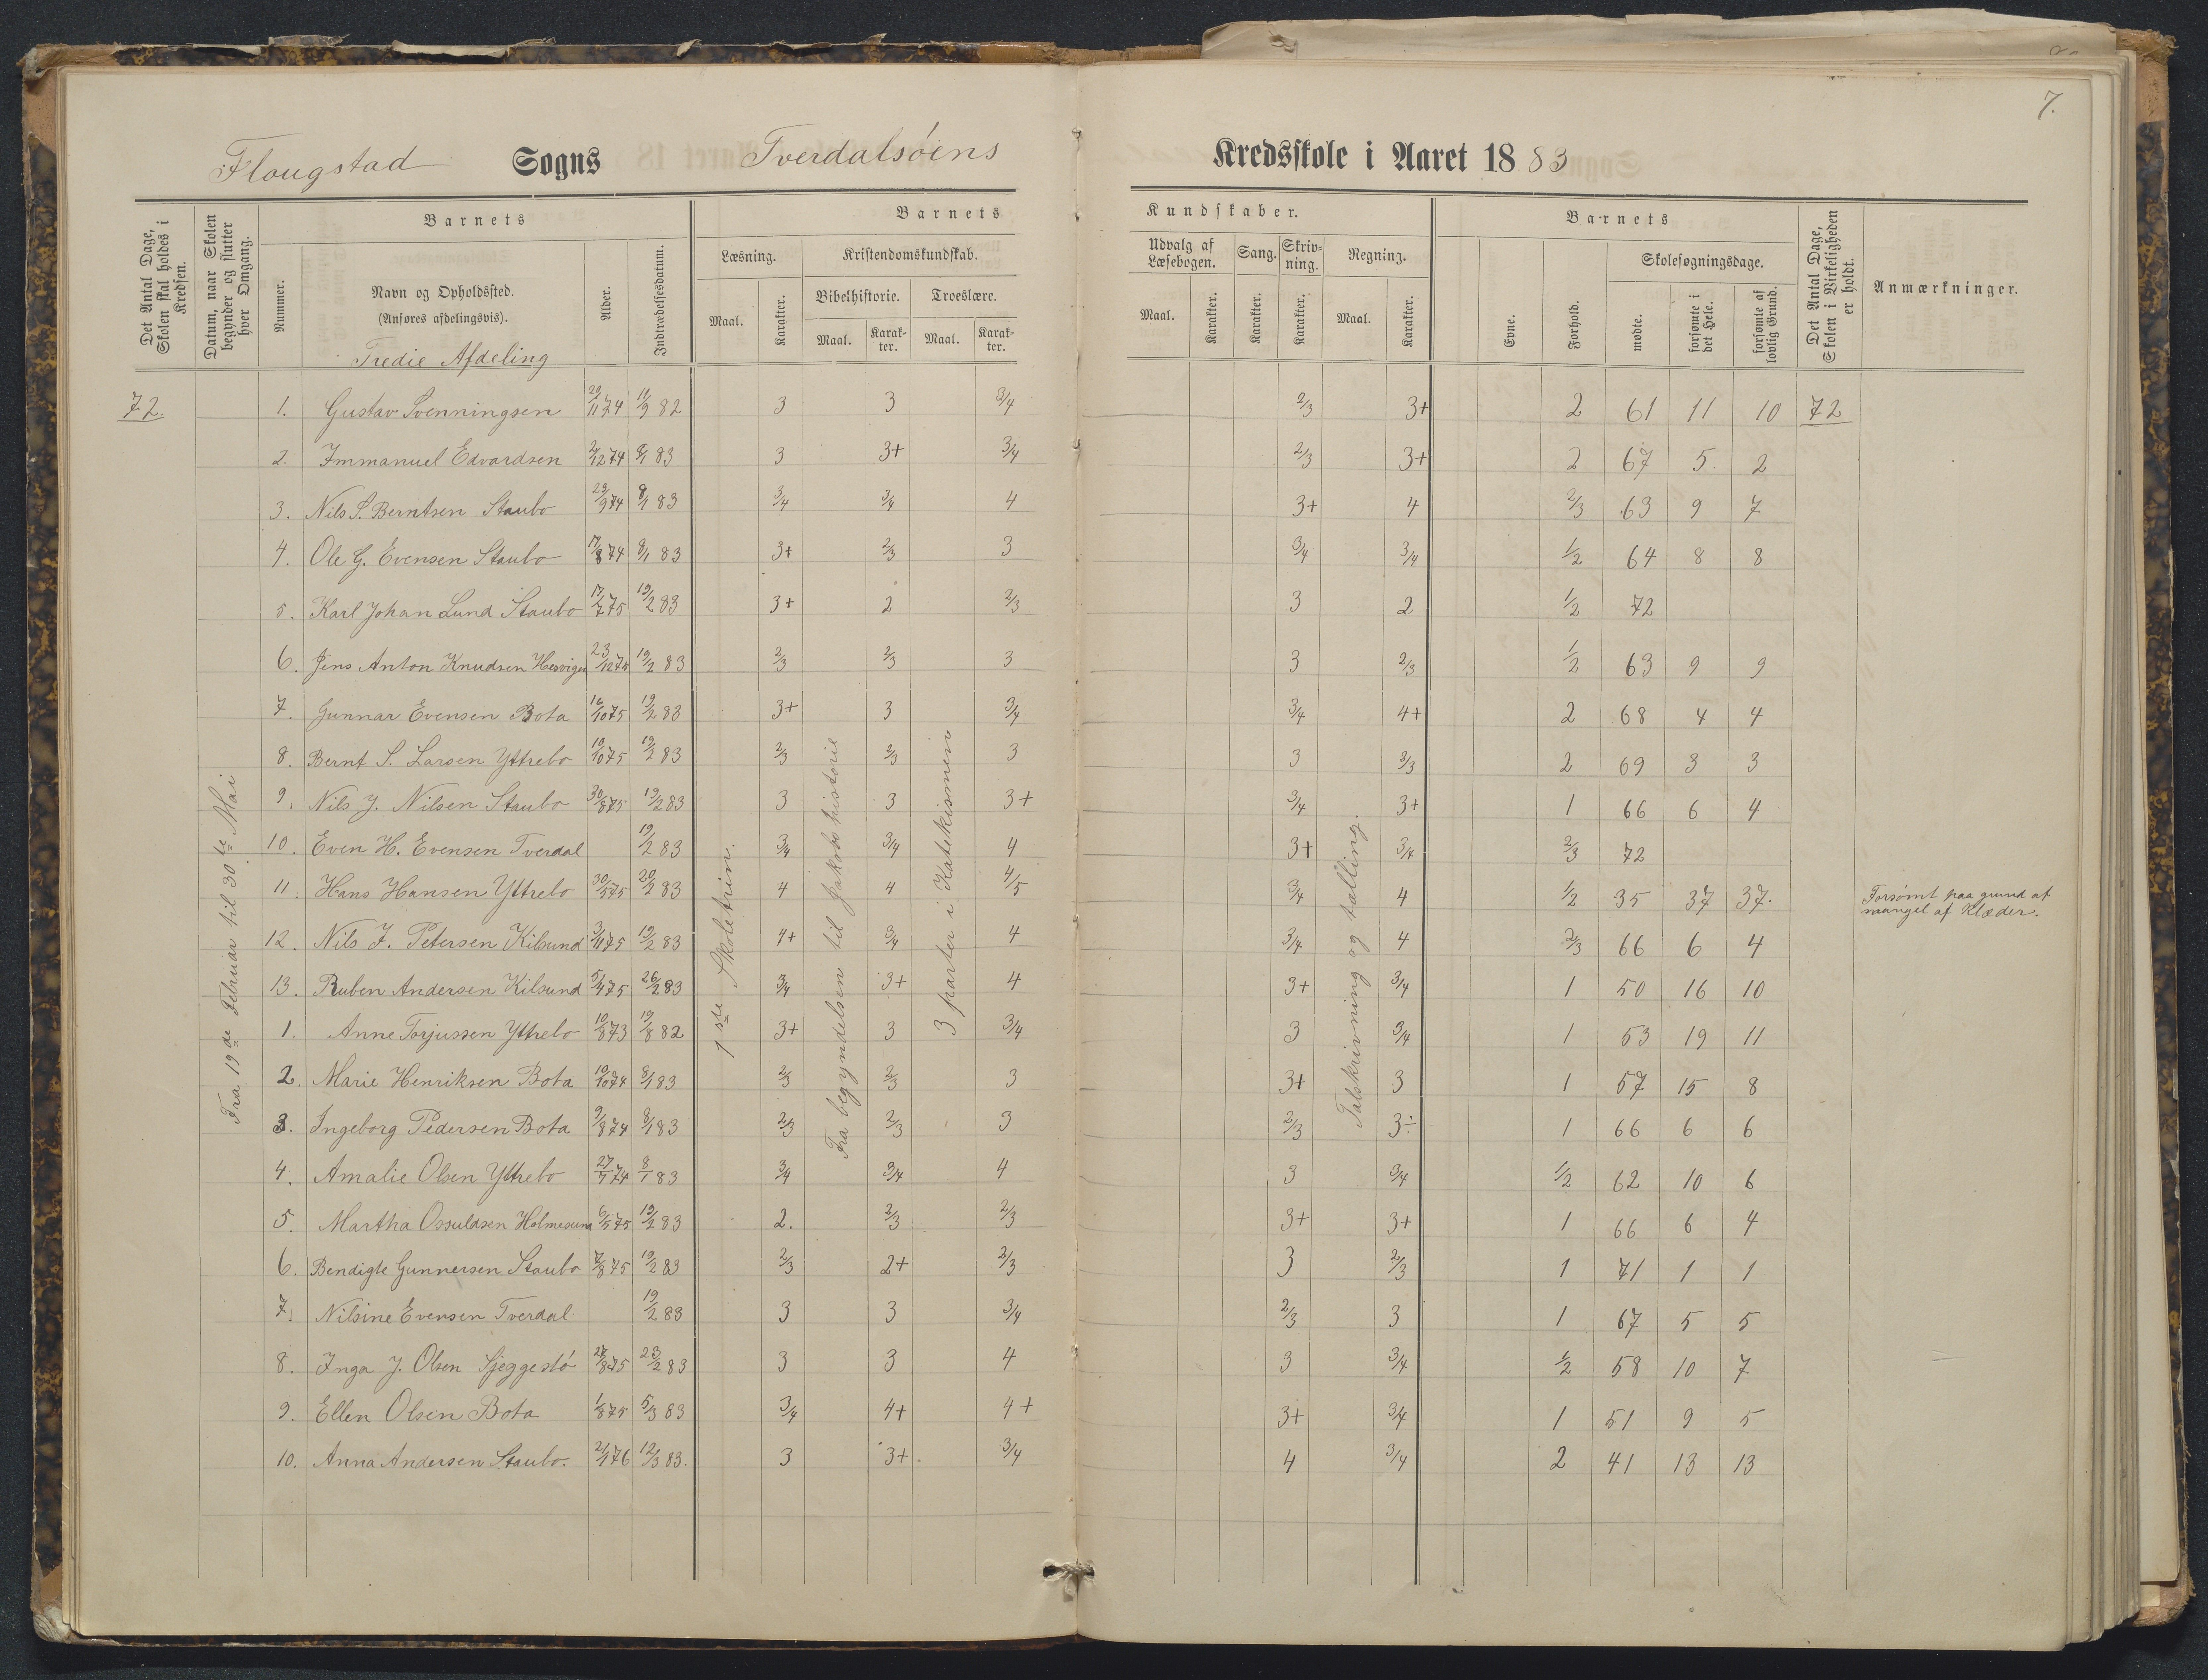 7.
Flougstad Sogns Tverdalsöens Kredsskole i Aaret 1883
Det Antal Dage, Skolen skal holdes i Kredsen.
Datum, naar Skolen begynder og slutter hver Omgang.
Barnets
Nummer.
Navn og Opholdssted.
(Anføres afdelingsvis).
Tredie Afdeling
Alder.
Indtrædelsesdatum.
Barnets Kundskaber.
Læsning. Kristendomskundskab. Udvalg af Læsebogen. Sang. Skrivning. Regning.
Bibelhistorie. Troeslære.
Maal. Karakter. Maal. Karakter. Maal. Karakter. Maal. Karakter. Karakter. Karakter. Maal. Karakter.
Barnets
Evne. Forhold.
Skolesøgningsdage.
mødte. forsømte i det Hele. forsømte af lovlig Grund.
Det Antal Dage, Skolen i Virkeligheden er holdt.
Anmærkninger.
72. 1. Gustav Svenningsen 29/11 74 11/9 82 3 3 3/4 2/3 3+ 2 61 11 10 72
2. Immanuel Edvardsen 2/12 74 8/1 83 3 3+ 3/4 2/3 3+ 2 67 5 2
3. Nils S. Berntsen Staubo 23/9 74 8/1 83 3/4 3/4 4 3+ 4 2/3 63 9 7
4. Ole G. Evensen Staubo 17/8 74 8/1 83 3+ 2/3 3 3/4 3/4 1/2 64 8 8
5. Karl Johan Lund Staubo 17/7 75 19/2 83 3+ 2 2/3 3 2 1/2 72
6. Jens Anton Knudsen 23/12 75 19/2 83 2/3 2/3 3 3 2/3 1/2 63 9 9
7. Gunnar Evensen Bota 16/10 75 19/2 83 3+ 3 3/4 3/4 4+ 2 68 4 4
8. Bernt S. Larsen Yttrebo 10/10 75 19/2 83 2/3 2/3 3 3 2/3 2 69 3 3
9. Nils J. Nilsen Staubo 30/8 75 19/2 83 3 3 3+ 3/4 3+ 1 66 6 4
10. Even H. Evensen Tverdal 19/2 83 3/4 3/4 4 3+ 3/4 2/3 72
11. Hans Hansen Yttrebo 30/5 75 20/2 83 4 4 4/5 3/4 4 1/2 35 37 37. Forsømt paa grund af
mangel af Klæder.
12. Nils J. Petersen Kilsund 3/11 75 19/2 83 4+ 3/4 4 3/4 4 2/3 66 6 4
13. Ruben Andersen Kilsund 5/4 75 26/2 83 3/4 3+ 4 3+ 3/4 1 50 16 10
1. Anne Torjussen Yttrebo 10/8 73 19/8 82 3+ 3 3/4 3 3/4 1 53 19 11
2. Marie Henriksen Bota 10/10 74 8/1 83 2/3 2/3 3 3+ 3 1 57 15 8
3. Ingeborg Pedersen Bota 9/8 74 8/1 83 2/3 2/3 3 2/3 3÷ 1 66 6 6
4. Amalie Olsen Yttrebo 27/7 74 8/1 83 3/4 3/4 4 3 3/4 1/2 62 10 6
5. Martha Osuldsen Holmesund 6/5 75 19/2 83 2. 2/3 2/3 3+ 3+ 1 66 6 4
6. Bendigte Gunnersen Staubo 7/8 75 19/2 83 2/3 2+ 2/3 3 2/3 1 71 1 1
7. Nilsine Evensen Tverdal 19/2 83 3 3 3/4 2/3 3 1 67 5 5
8. Inga J. Olsen Sjeggestö 28/8 75 23/2 83 3 3 4 3 3/4 1/2 58 10 7
9. Ellen Olsen Bota 1/8 75 5/3 83 3/4 4+ 4+ 3+ 3/4 1 51 9 5
10. Anna Andersen Staubo. 21/1 76 12/3 83. 3 3+. 3/4 4 3/4 2 41 13 13
Fra 19de Februar til 30te Mai
1ste Skoletrin.
Fra begyndelsen til Jakobs historie
3 parter i Katekismen
Talskrivning og tælling.